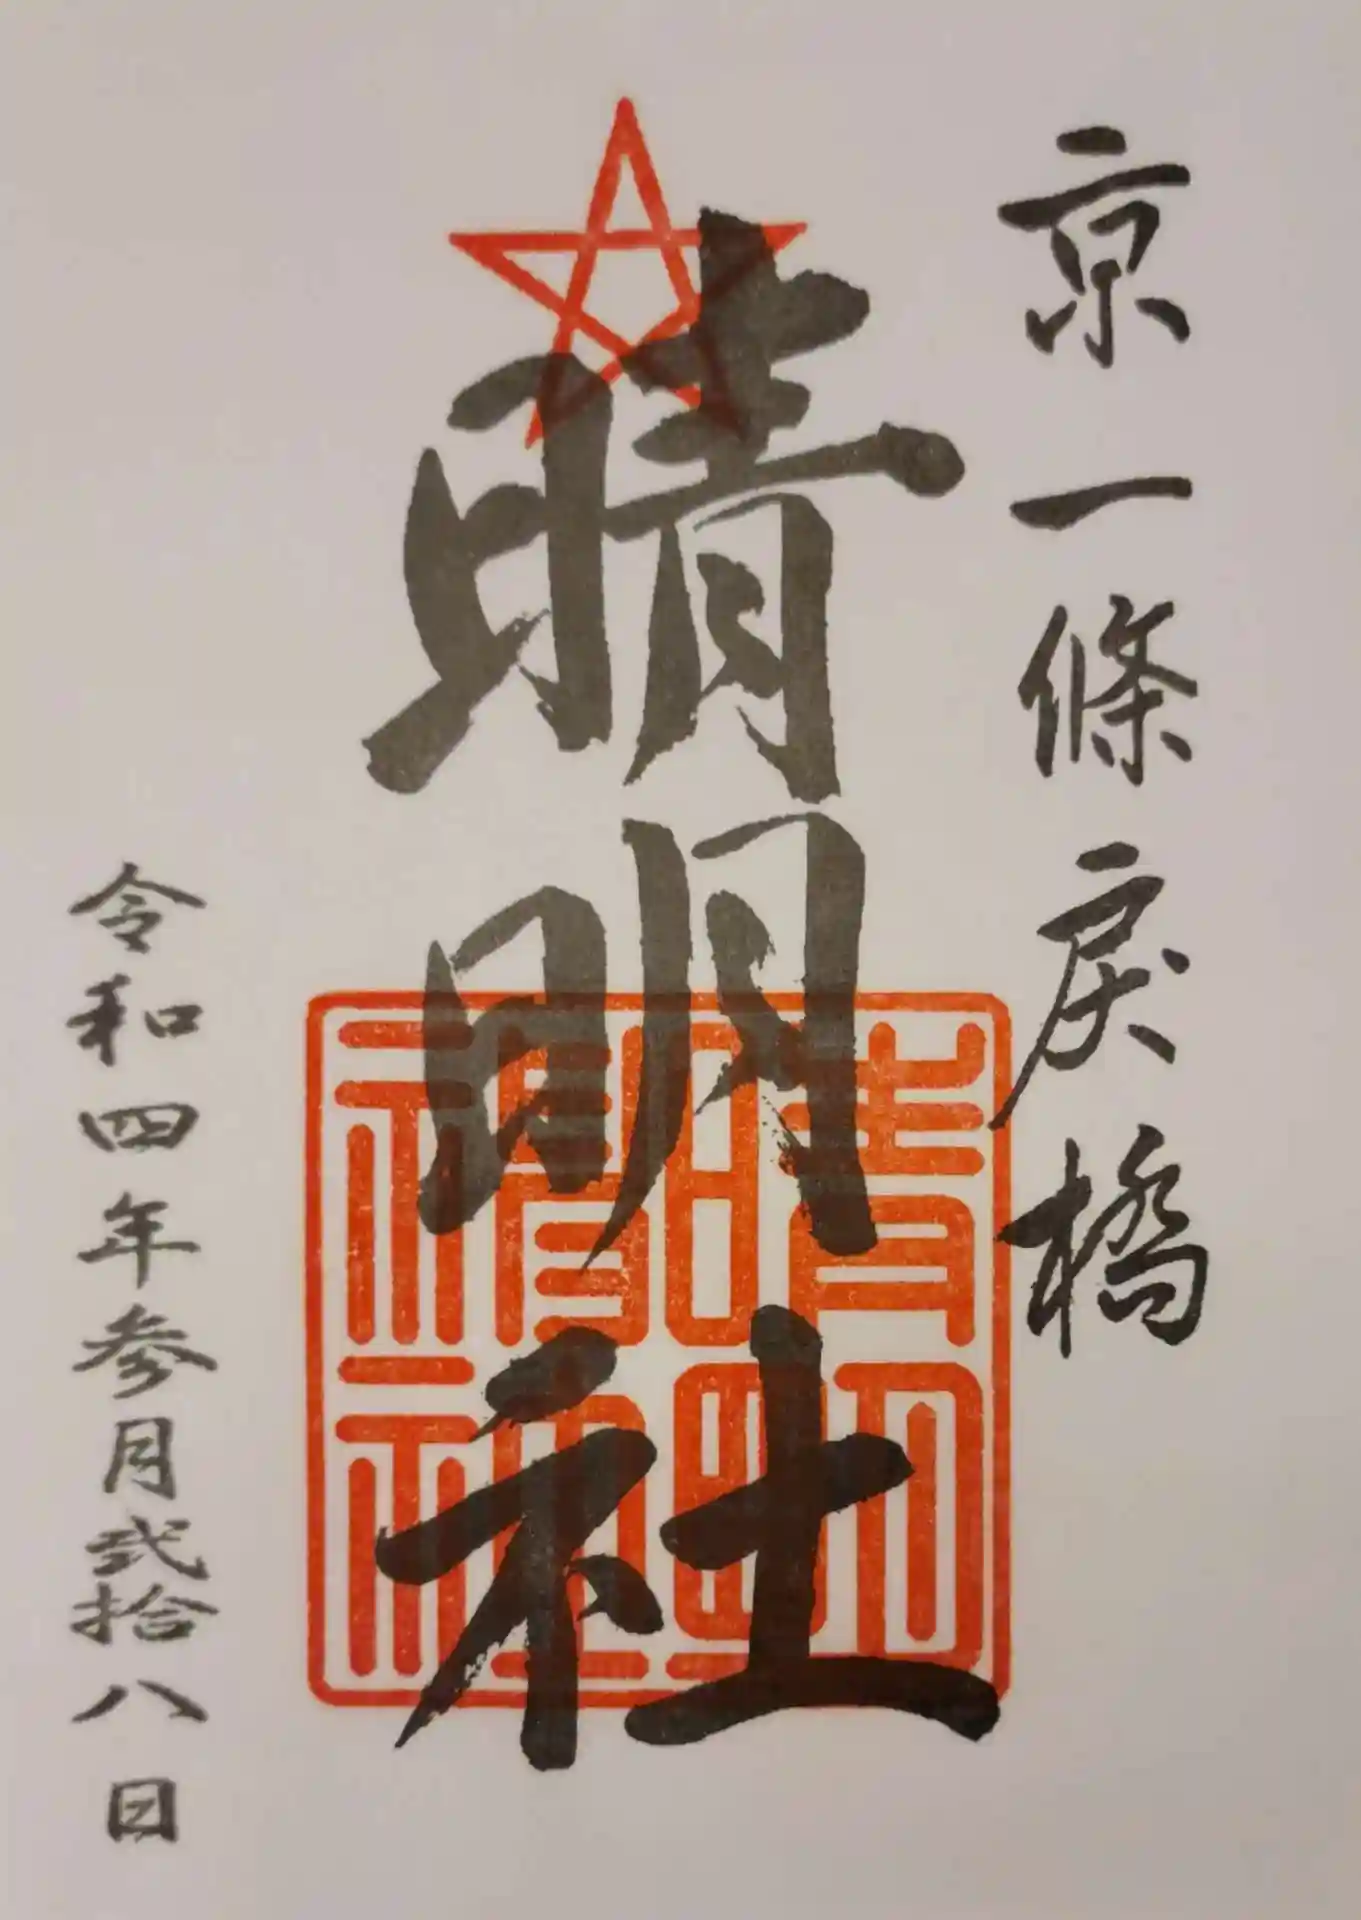 京一條戻橋
晴明社
令和四年参月弐拾八日